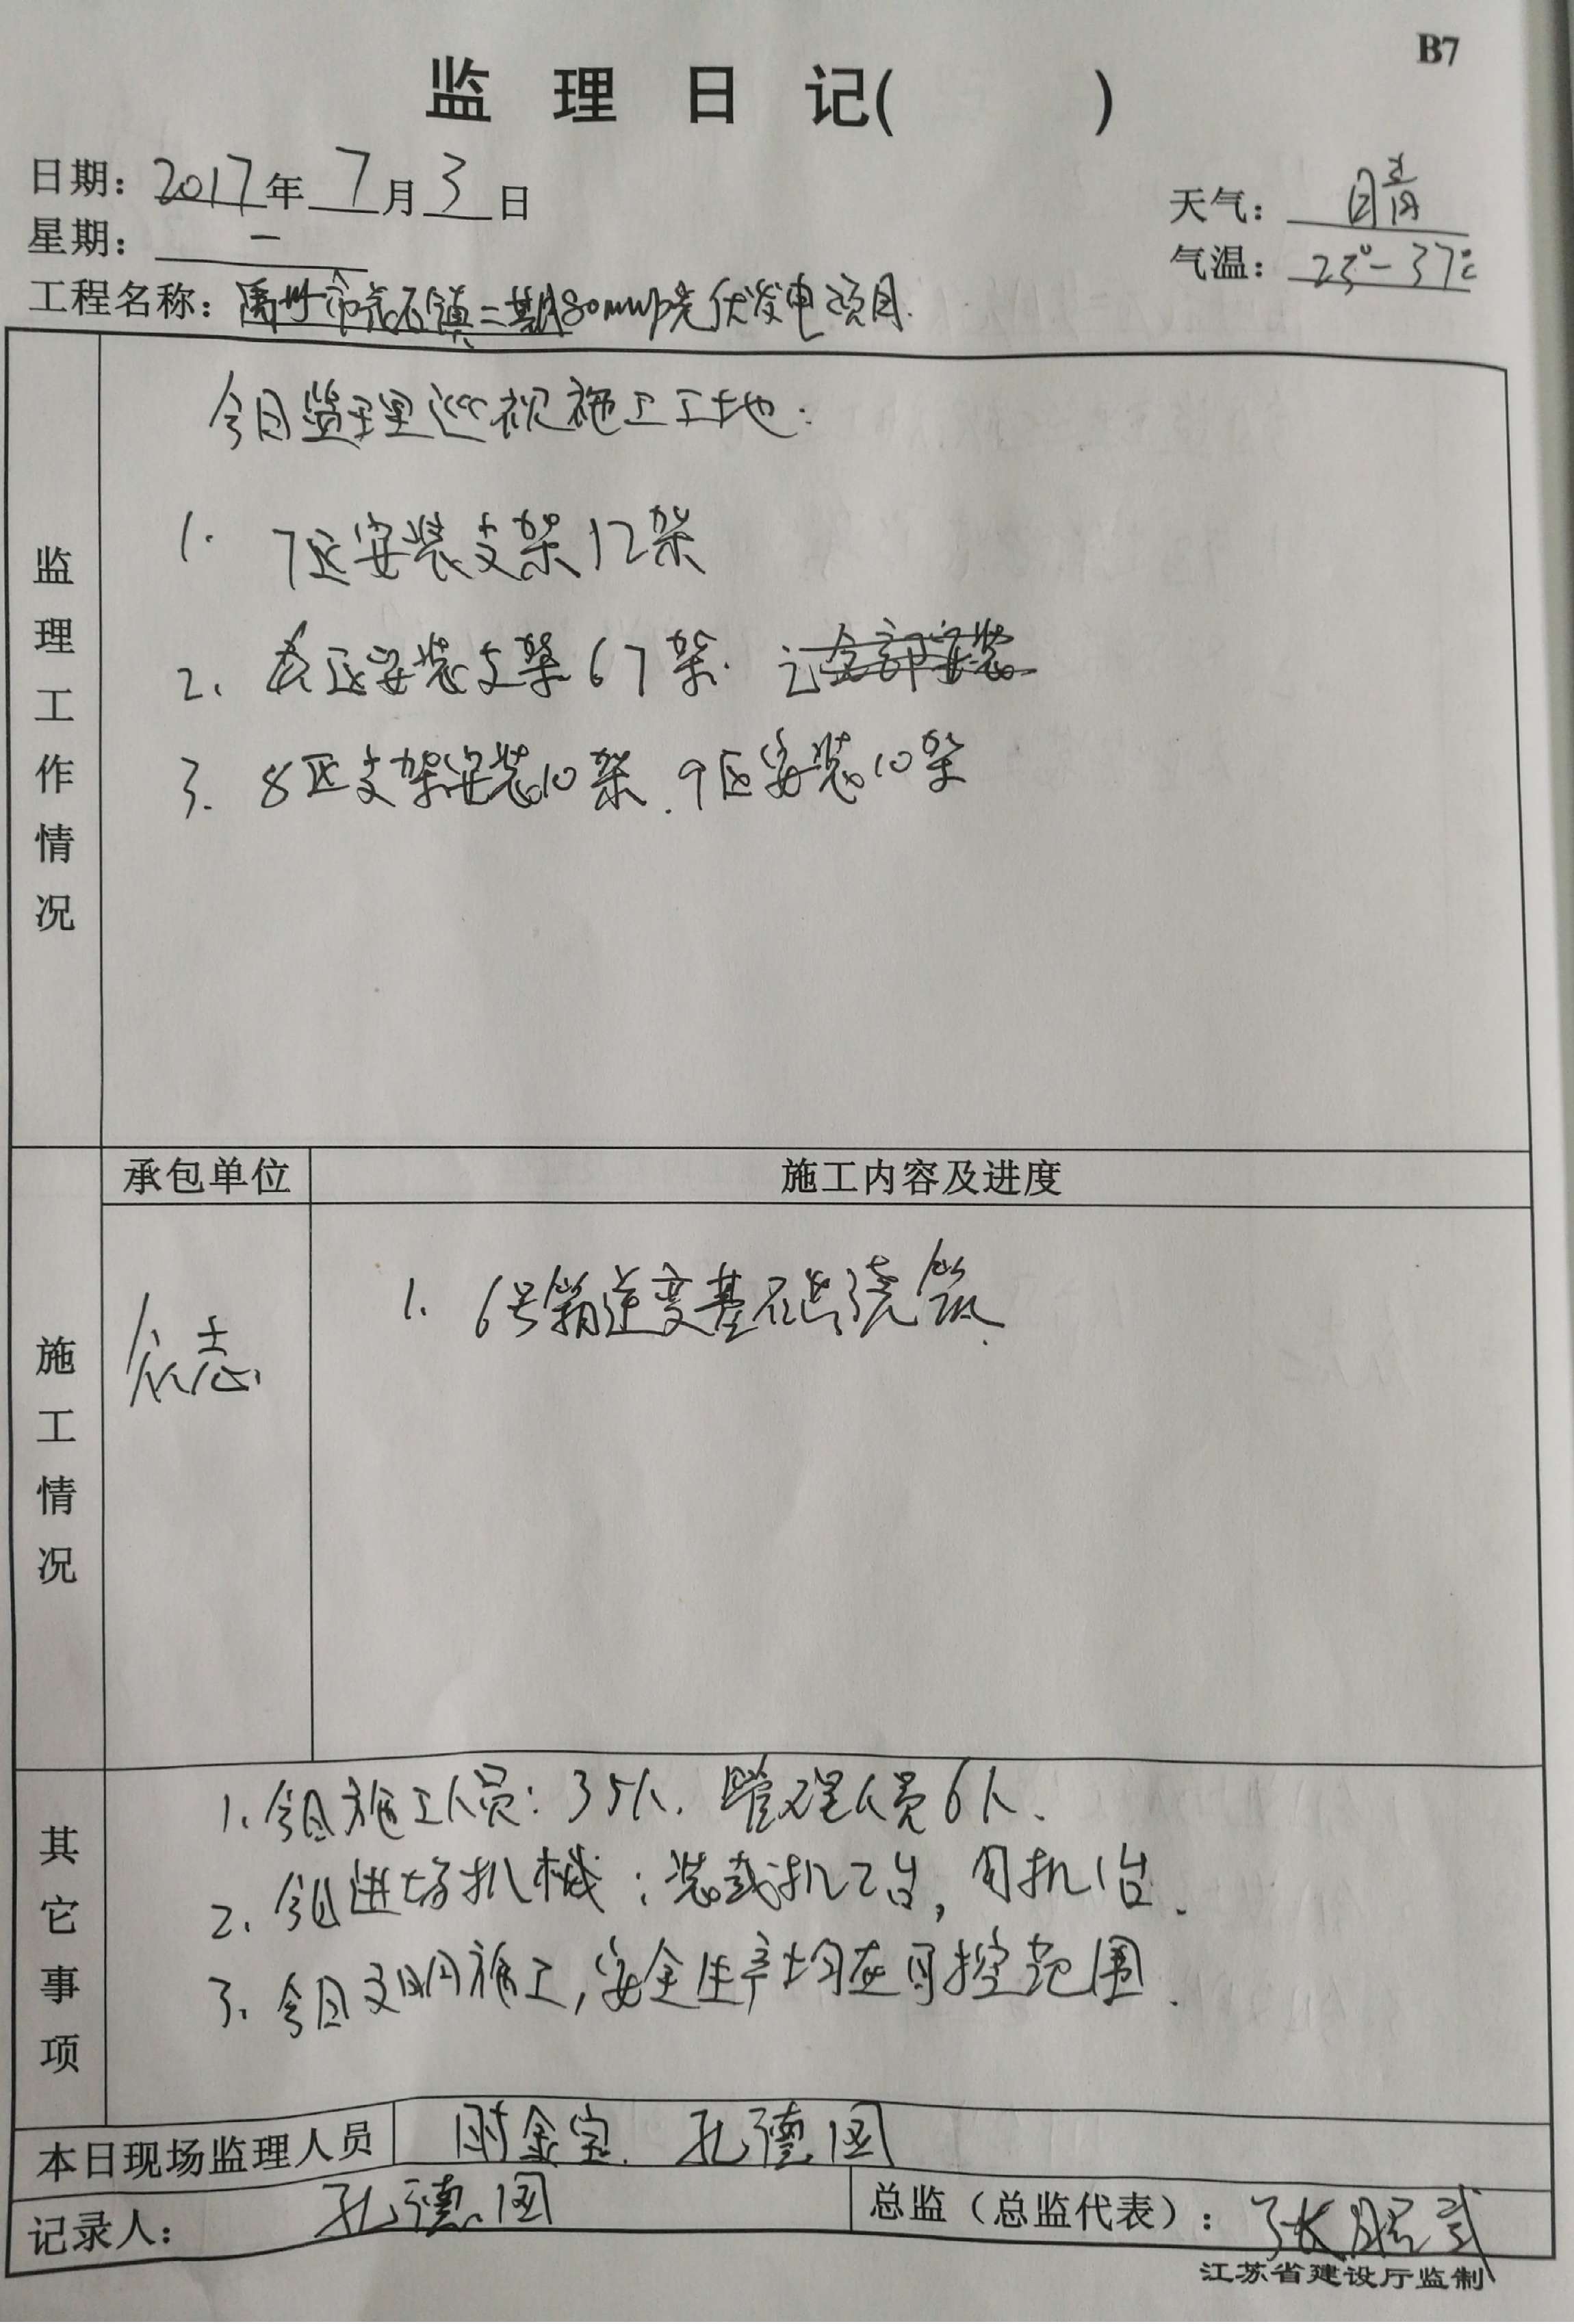 B7
监 理 日 记( )
日期: 2017年 7月 3日
天气: 晴
星期: 一
气温: 23°-37℃
工程名称: 禹州市 石镇二期80MWp光伏发电项目.
监理工作情况
今日监理巡视施工工地:
1. 7区安装支架12架
2. 区安装支架67架.
3. 8区支架安装10架.9区安装10架
承包单位
施工内容及进度
施工情况
众志
1. 6号箱逆变基础浇筑.
其它事项
1. 今日施工人员: 35人. 管理人员6人.
2. 今日进场机械: 装载机2台, 勾机1台.
3. 今日文明施工, 安全生产均在可控范围.
本日现场监理人员
时金宝. 孔德国
记录人: 孔德国
总监（总监代表）: 张
江苏省建设厅监制